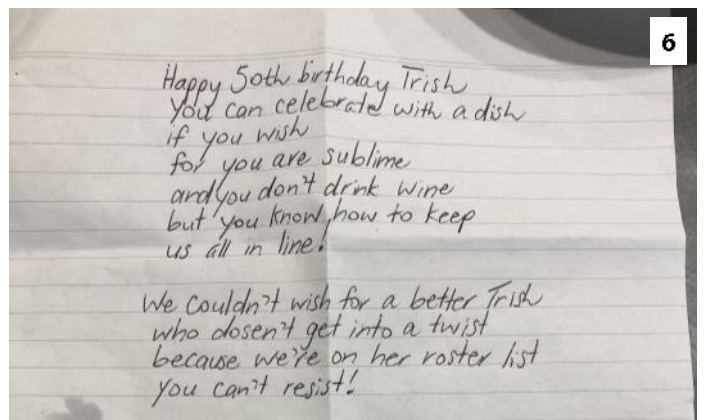 6
Happy 50th birthday Trish
You can celebrate with a dish
if you wish
for you are sublime
and you don't drink wine
but you know, how to keep
us all in line!
We couldn't wish for a better Trish
who dosen't get into a twist
because we're on her roster list
You can't resist!